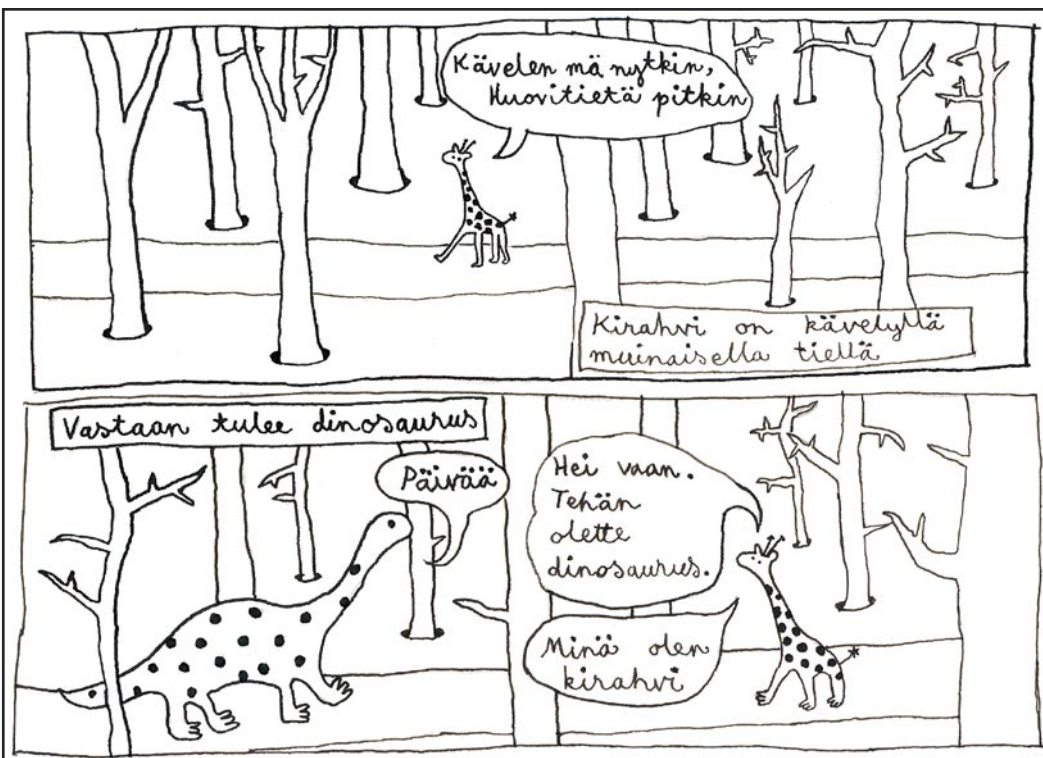 Kävelen mä nytkin,
Huovitietä pitkin
Kirahvi on kävelyllä
muinaisella tiellä
Vastaan tulee dinosaurus
Päivää
Hei vaan.
Tehän
olette
dinosaurus.
Minä olen
kirahvi